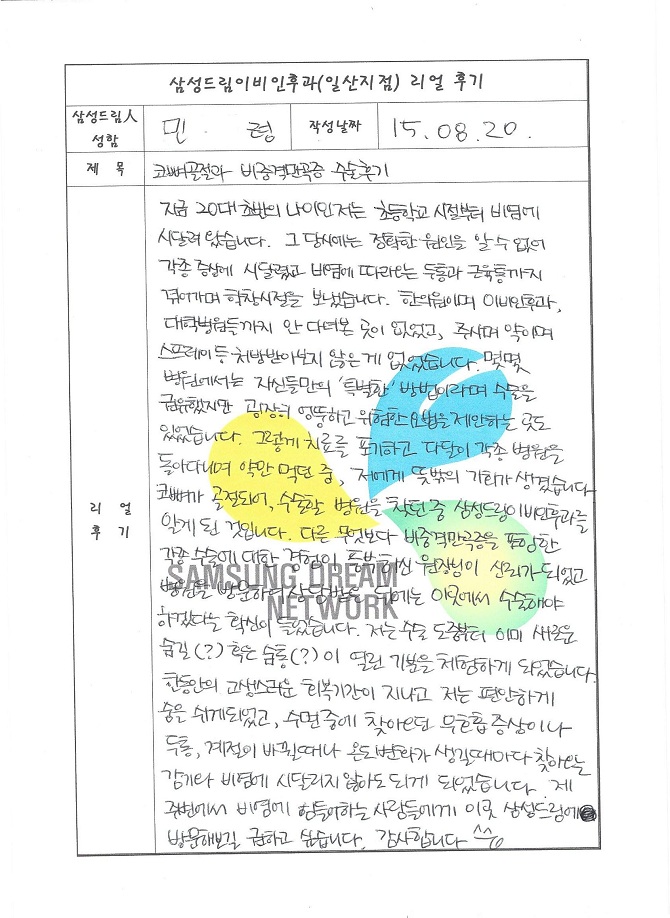 삼성드림이비인후과(일산지점) 리얼 후기
삼성드림人
성함
민 령
작성날짜
15.08.20.
제 목
코뼈골절과 비중격만곡증 수술후기
리 얼
후 기
지금 20대 초반의 나이인 저는 초등학교 시절부터 비염에
시달려 왔습니다. 그 당시에는 정확한 원인을 알 수 없어
각종 증상에 시달렸고 비염에 따라오는 두통과 근육통까지
겪어가며 학창시절을 보냈습니다. 한의원이며 이비인후과,
대학병원등까지 안 다녀본 곳이 없었고, 주사며 약이며
스프레이 등 처방받아보지 않은 게 없었습니다. 몇몇
병원에서는 자신들만의 '특별한' 방법이라며 수술을
권유했지만 굉장히 엉뚱하고 위험한 요법을 제안하는 곳도
있었습니다. 그렇게 치료를 포기하고 다달이 각종 병원을
돌아다니며 약만 먹던 중, 저에게 뜻밖의 기회가 생겼습니다
코뼈가 골절되어, 수술할 병원을 찾던 중 삼성드림이비인후과를
알게 된 것입니다. 다른 무엇보다 비중격만곡증을 포함한
각종 수술에 대한 경험이 풍부하신 원장님이 신뢰가 되었고
병원을 방문하여 상담받은 뒤에는 이곳에서 수술해야
하겠다는 확신이 들었습니다. 저는 수술 도중부터 이미 새로운
숨길(?) 혹은 숨통(?)이 열린 기분을 체험하게 되었습니다.
한동안의 고생스러운 회복기간이 지나고 저는 편안하게
숨을 쉬게되었고, 수면 중에 찾아오던 무호흡 증상이나
두통, 계절이 바뀔때나 온도변화가 생길때마다 찾아오는
감기와 비염에 시달리지 않아도 되게 되었습니다. 제
주변에서 비염에 힘들어하는 사람들에게 이곳 삼성드림에
방문해보길 권하고 싶습니다. 감사합니다 ^^
SAMSUNG DREAM
NETWORK